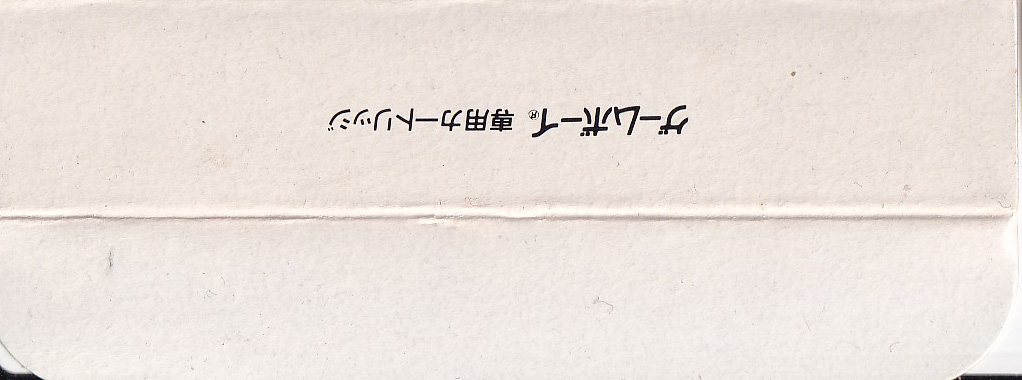 ゲームボーイ® 専用カートリッジ